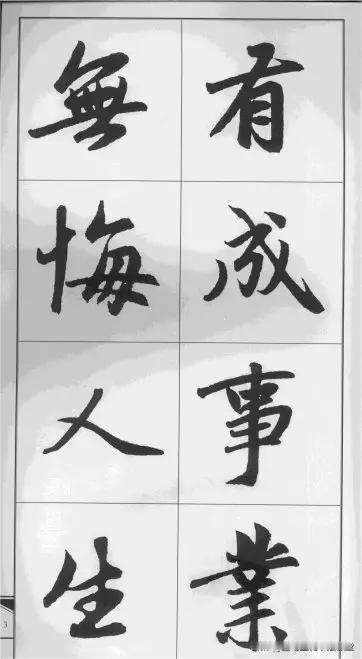 有成事業
無悔人生
3